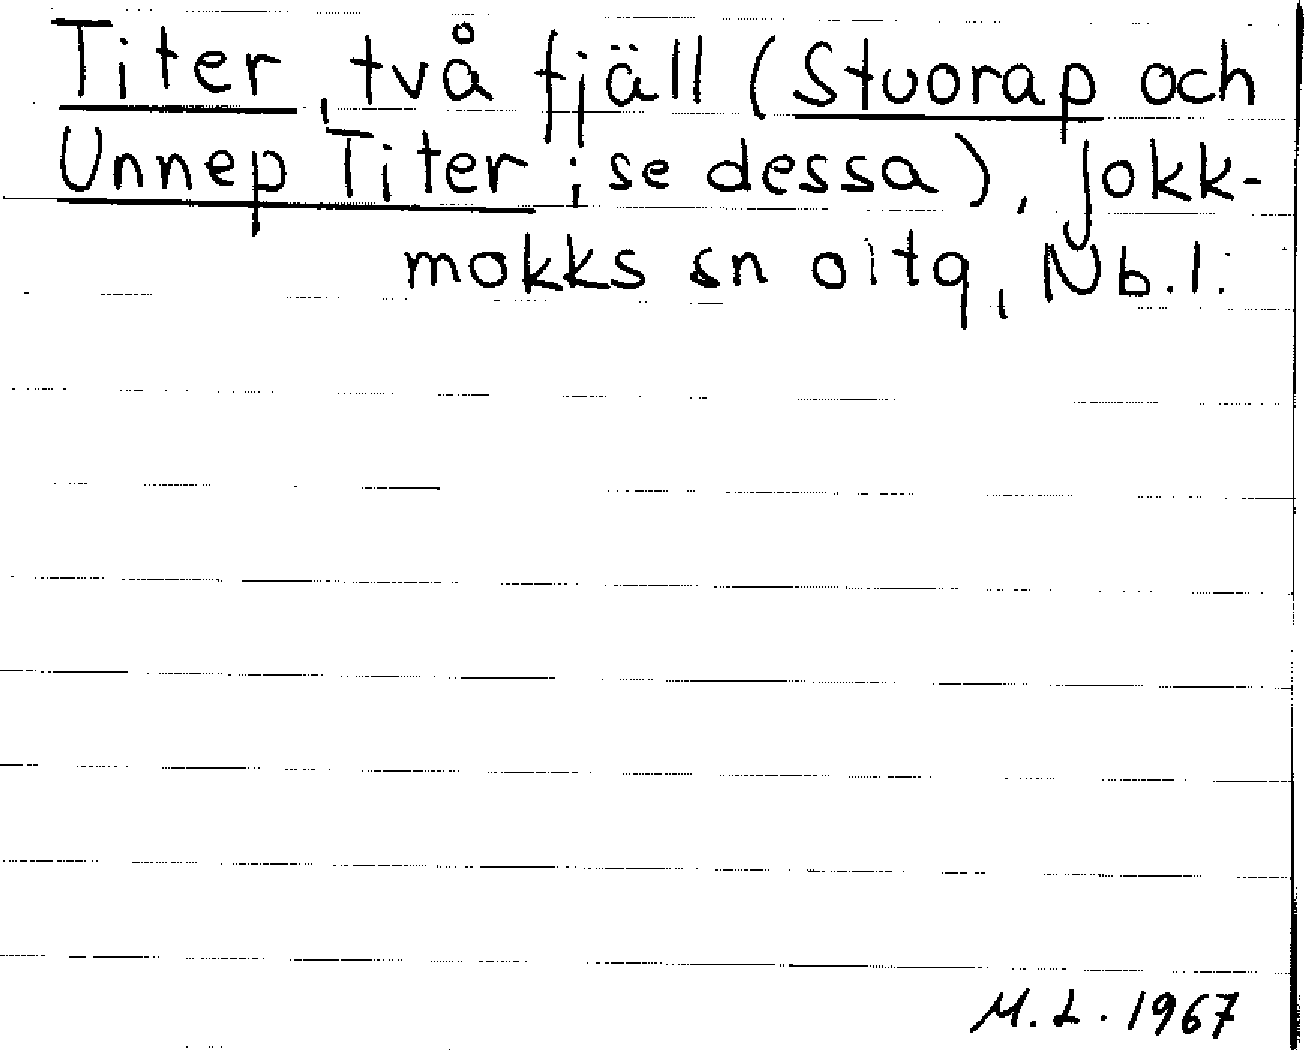 Titer, två fjäll (Stuorap och
Unnep Titer; se dessa), Jokk-
mokks sn oitq, Nb.l.
M.L. 1967